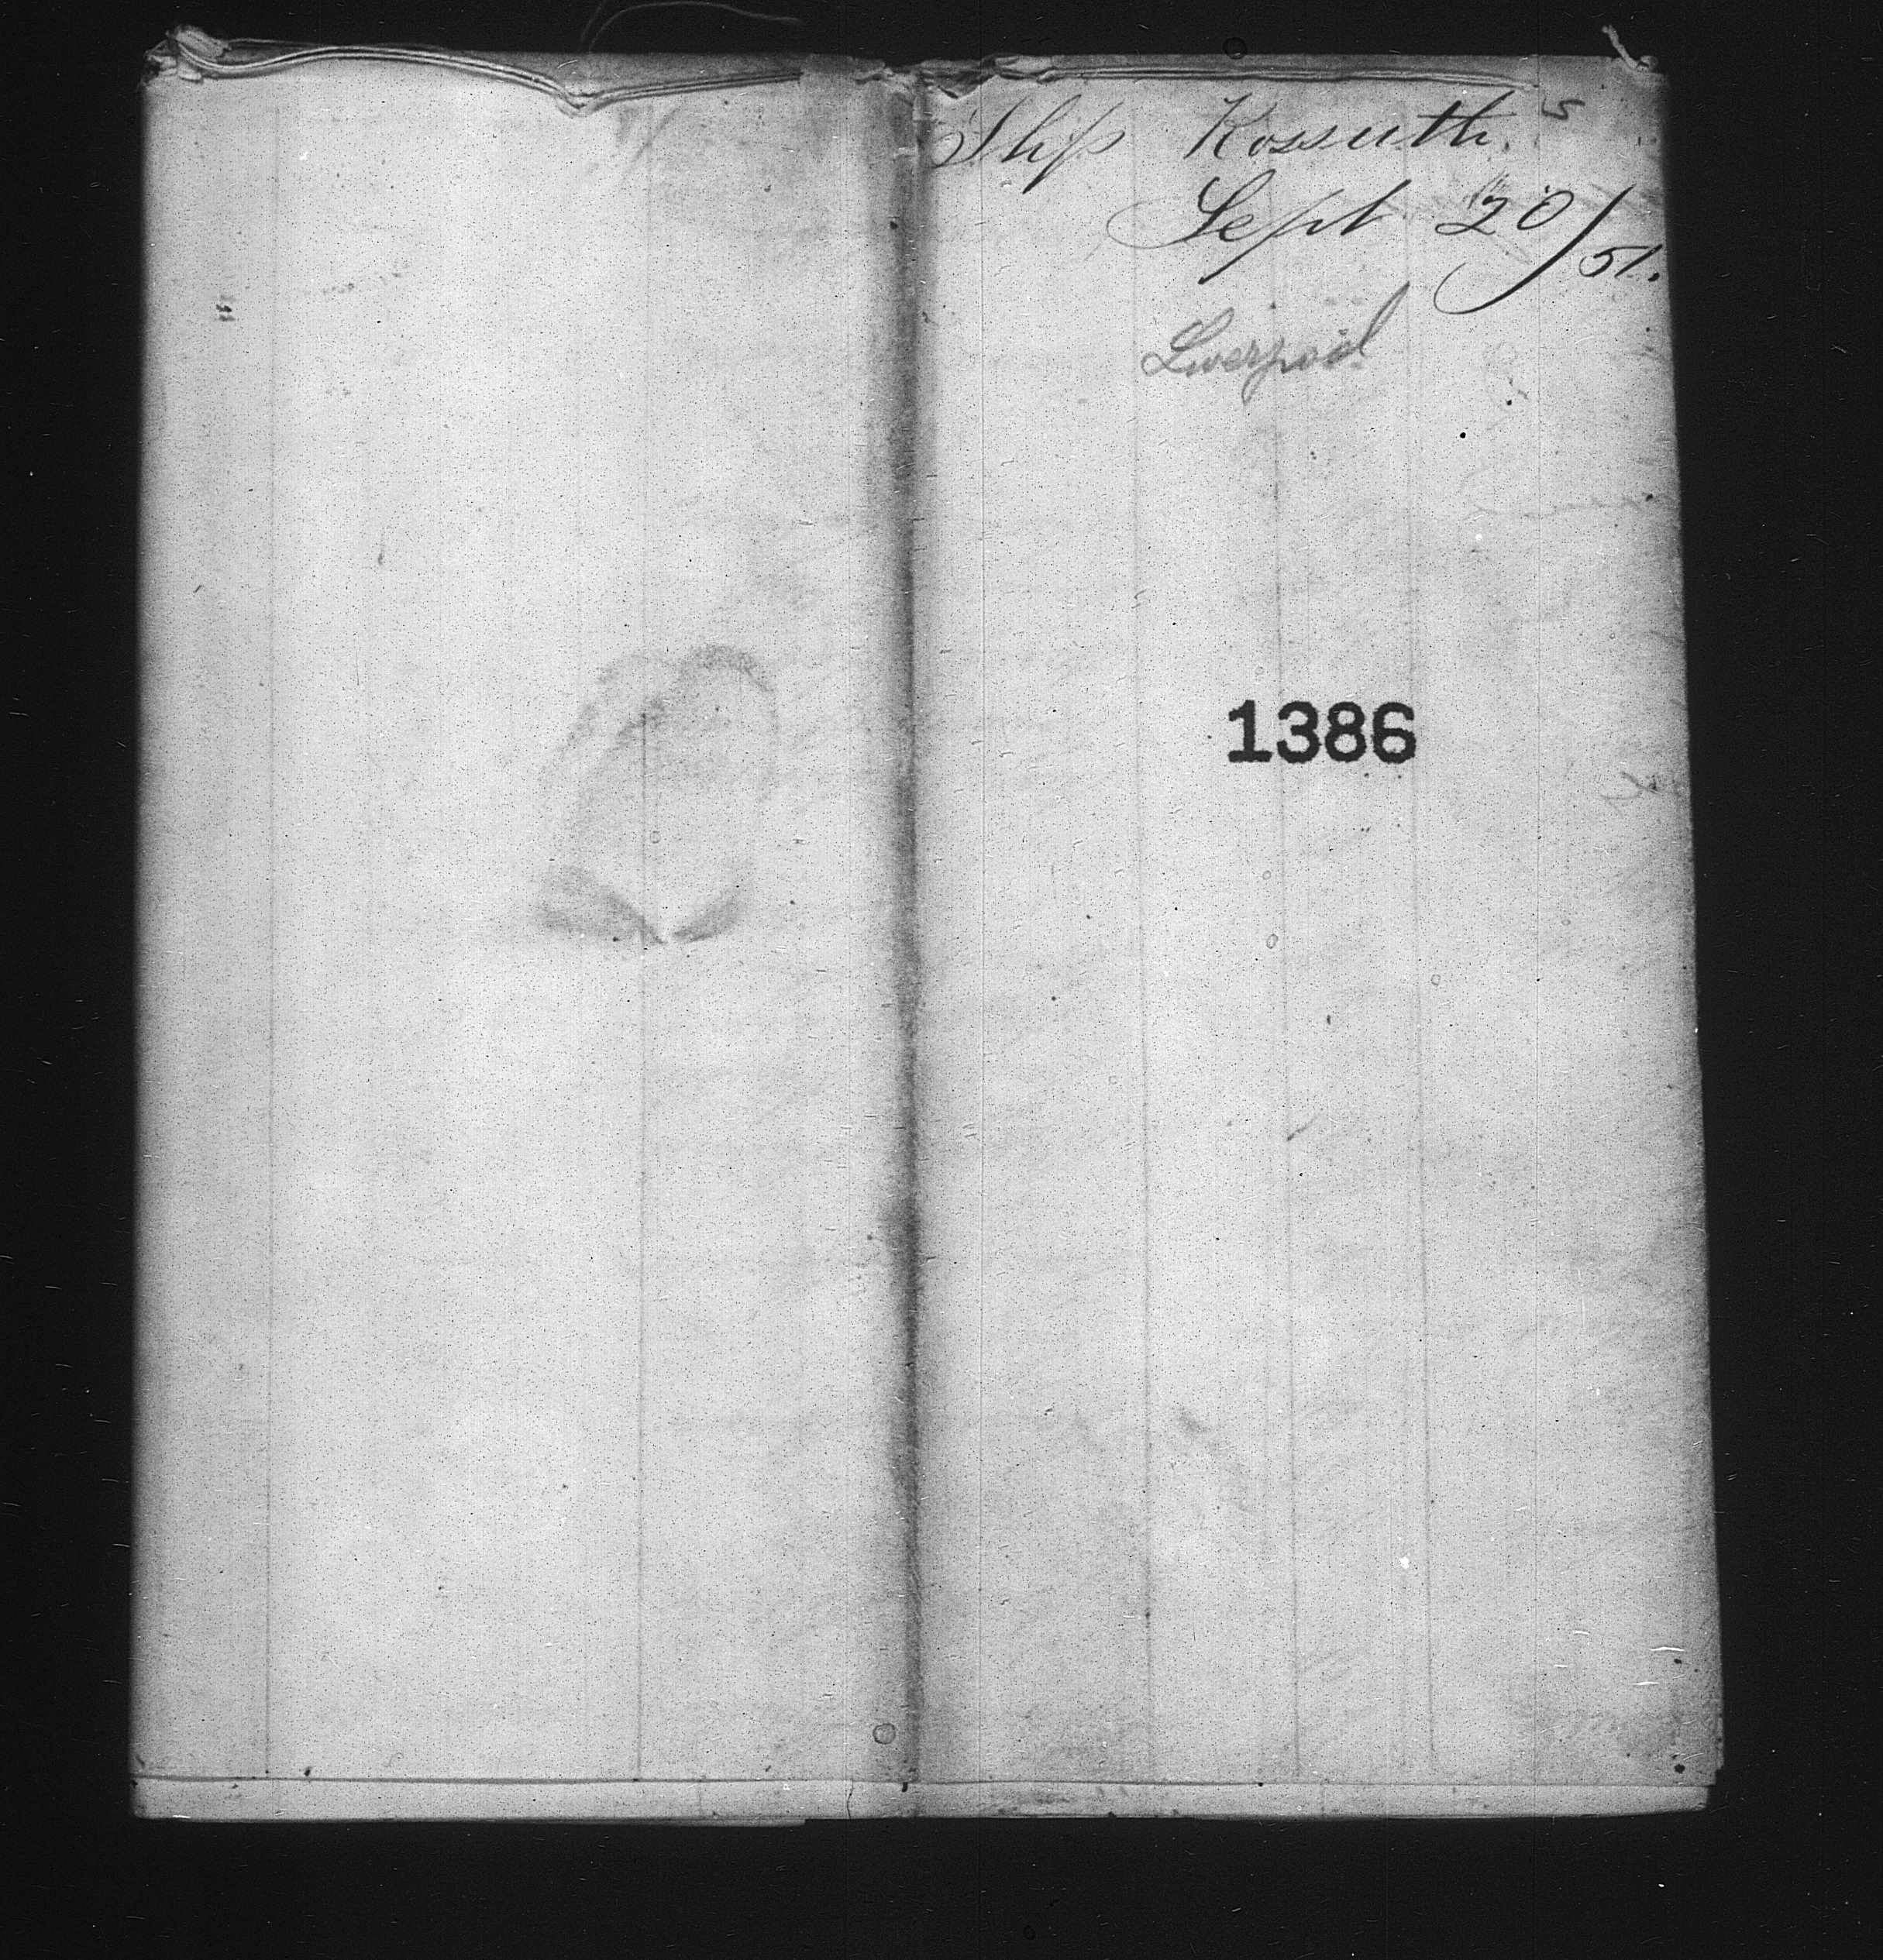 Ship Kossuth. 5
Sept 20/51.
Liverpool
1386